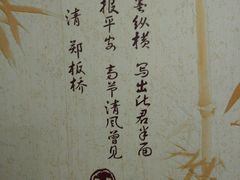 墨纵横 写出此君半面
报平安 高节清风曾见
清 郑板桥